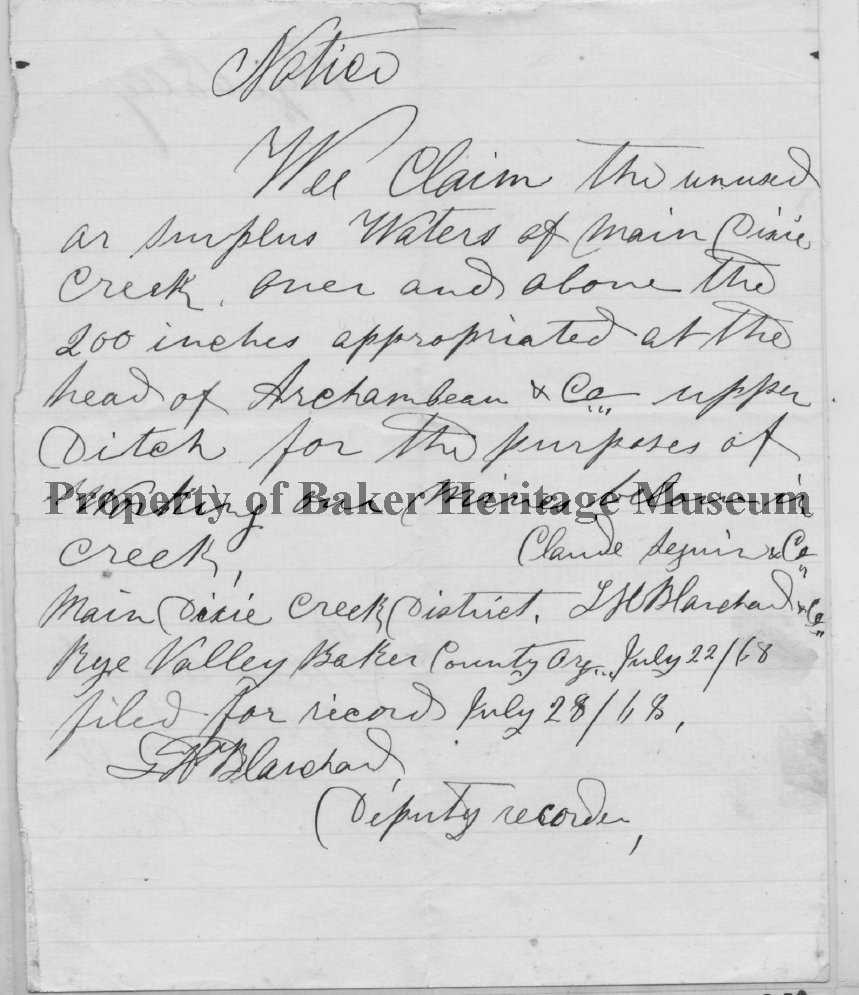 Notice
Wee Claim the unused
or surplus Waters of Main Dixie
Creek, over and above the
200 inches appropriated at the
head of Archambeau & Co upper
Ditch for the purposes of
Working our Mines below in
Property of Baker Heritage Museum
Creek, Claude Seguin & Co
Main Dixie Creek District, L H Blanchard & Co
Rye Valley Baker County Org, July 22/68
filed for record July 28/68,
L H Blanchard,
Deputy recorder,